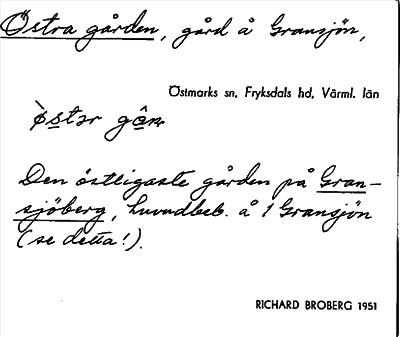 Östra gården, gård å Gransjön,
Östmarks sn, Fryksdals hd, Värml. län
Den östligaste gården på Gran-
sjöberg, huvudbeb. å 1 Gransjön
(se detta!).
RICHARD BROBERG 1951